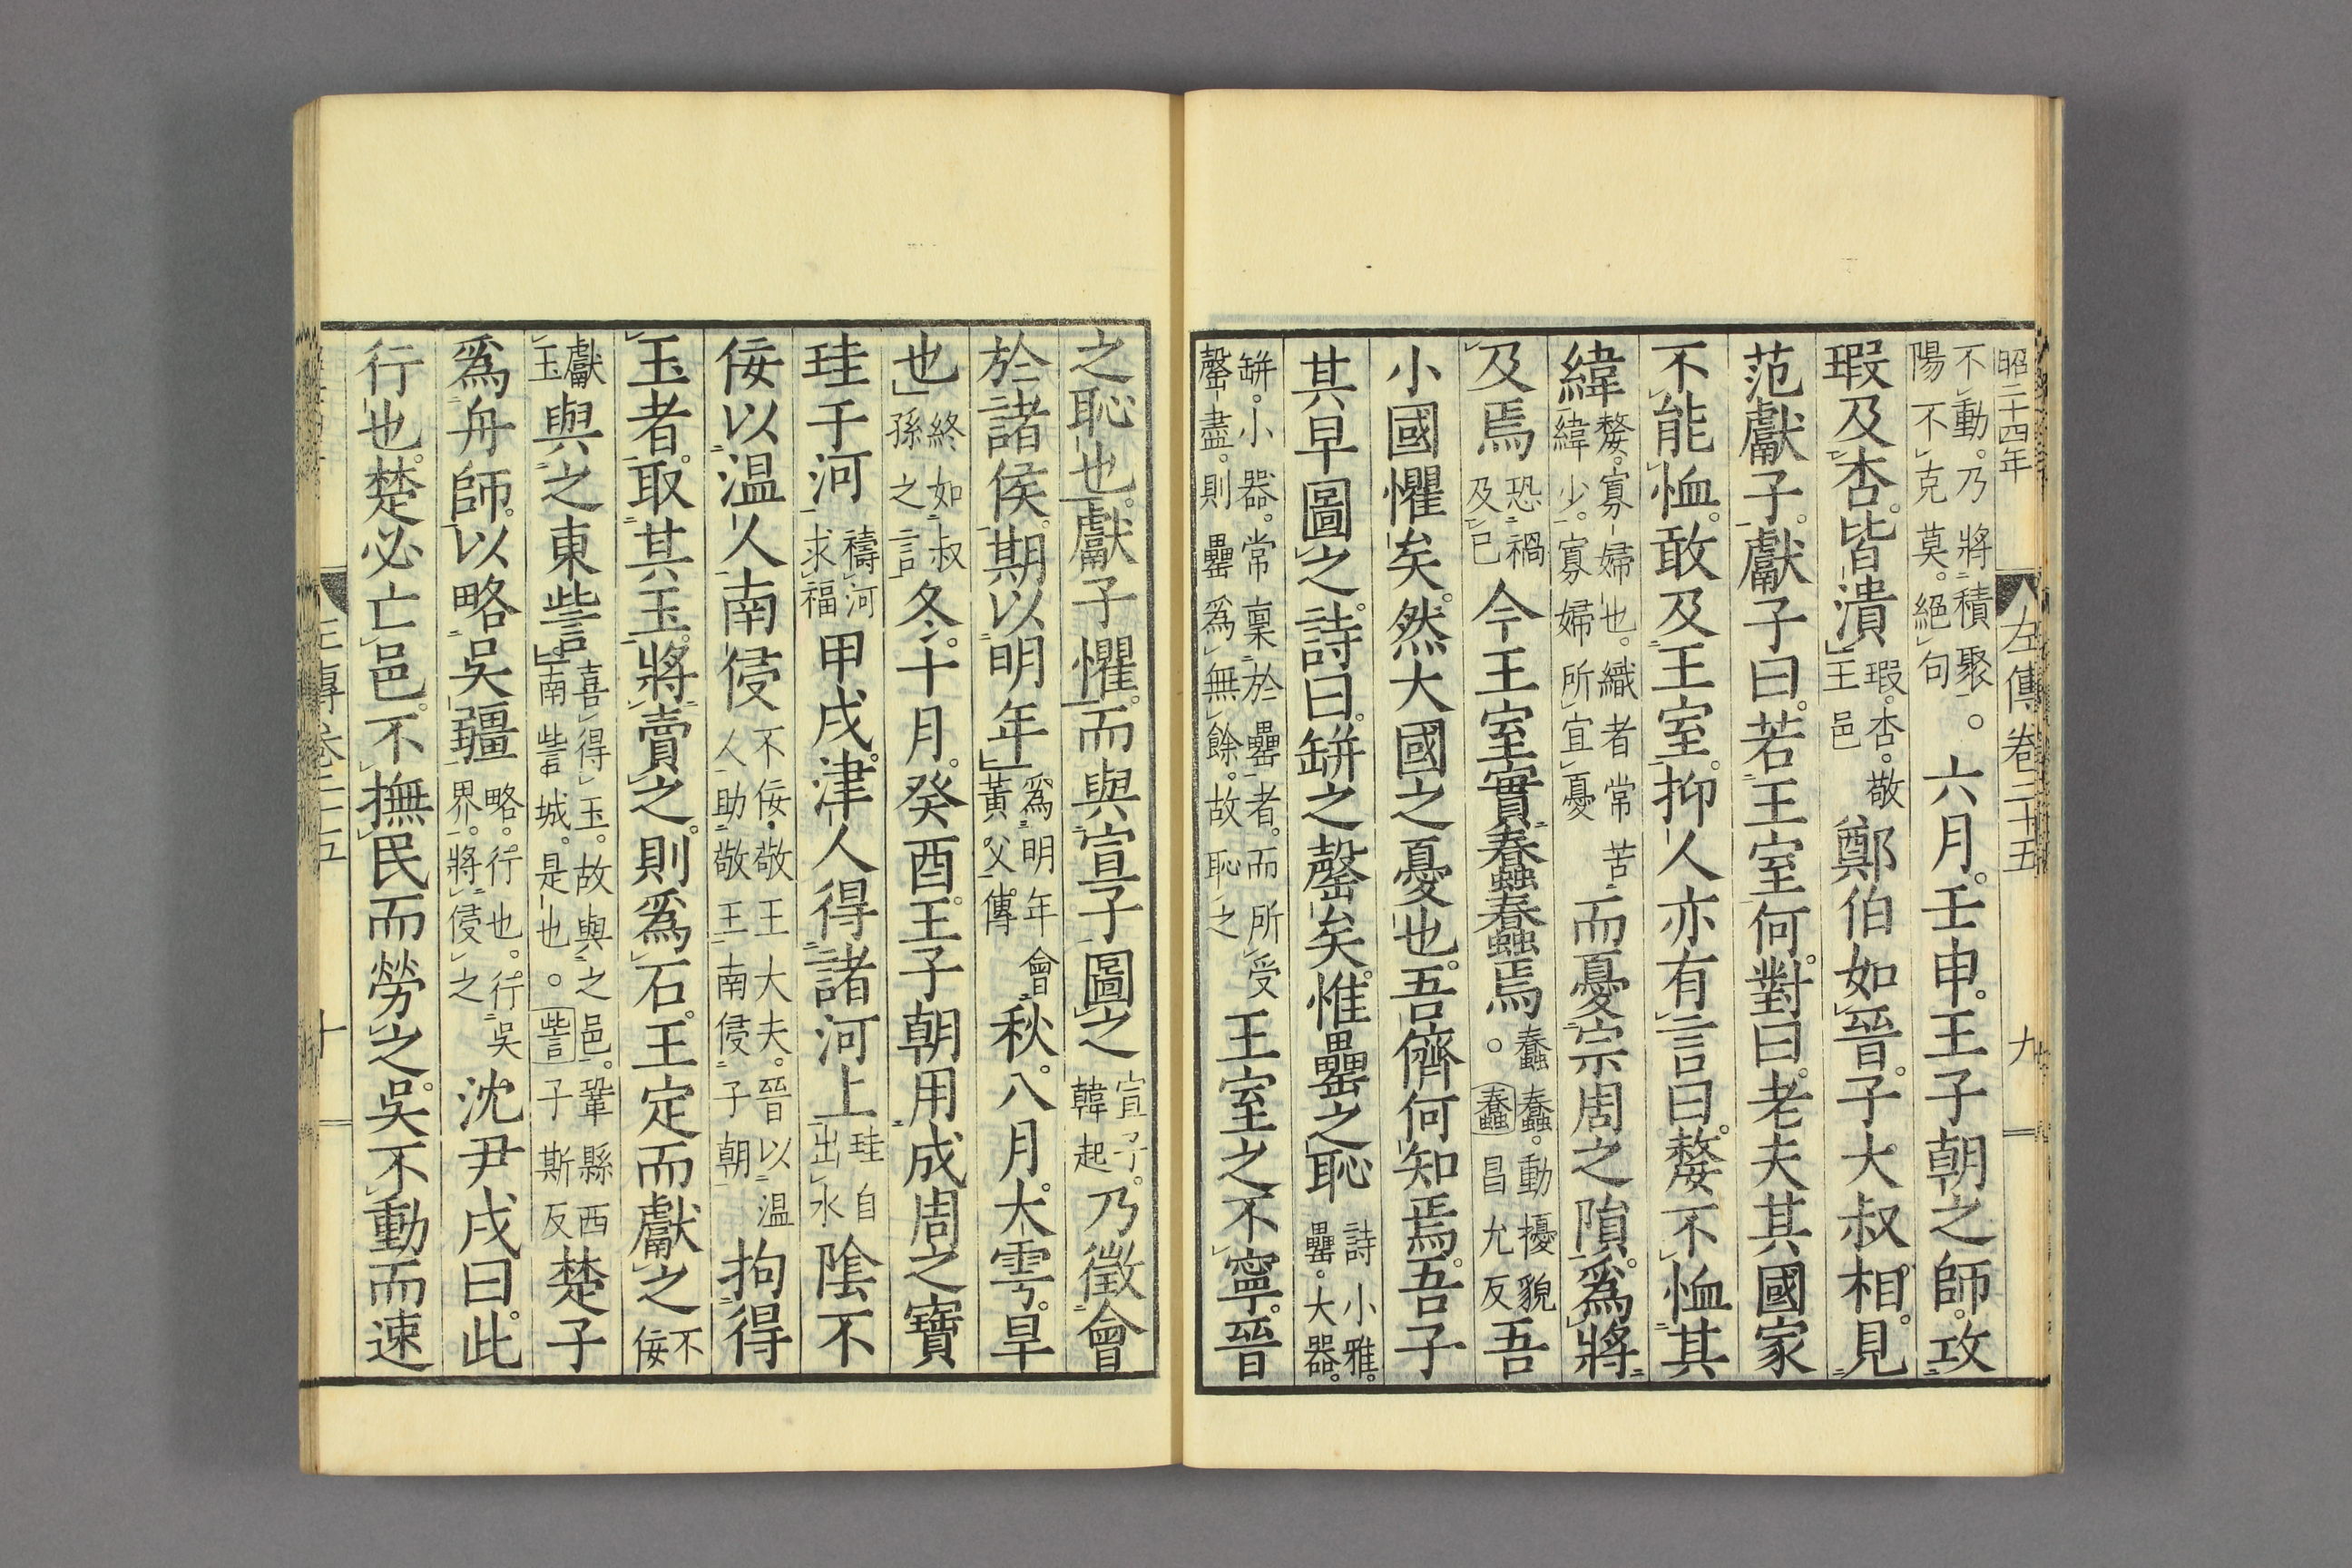 昭二十四年　左傳卷二十五　九
不動。乃將積聚陽不克莫。絕句。六月。壬申。王子朝之師。攻
瑕及杏。皆潰瑕。杏。敬王邑鄭伯如晉。子大叔相。見
范獻子。獻子曰。若王室何。對曰。老夫其國家
不能恤。敢及王室。抑人亦有言曰。嫠不恤其
緯嫠。寡婦也。織者常苦緯少。寡婦所宜憂而憂宗周之隕。爲將
及焉恐禍及己今王室實蠢蠢焉蠢蠢。動擾貌。○蠢昌允反吾
小國懼矣。然大國之憂也。吾儕何知焉。吾子
其早圖之。詩曰。缾之罄矣。惟罍之恥詩小雅。罍。大器。
缾。小器。常稟於罍者。而所受罄盡。則罍爲無餘。故恥之王室之不寧。晉
之恥也。獻子懼。而與宣子圖之宣子。韓起乃徵會
於諸侯。期以明年爲明年會黃父。傳秋。八月。大雩。旱
也終如叔孫之言冬。十月。癸酉。王子朝用成周之寶
珪于河禱河求福甲戌。津人得諸河上珪自出水陰不
佞以溫人南侵不佞。敬王大夫。晉以溫人助敬王南侵子朝拘得
玉者。取其玉。將賣之。則爲石。王定而獻之不佞
獻玉與之東訾喜得玉。故與之邑。鞏縣西南訾城。是也。○訾子斯反楚子
爲舟師。以略吳疆略。行也。行吳界。將侵之沈尹戌曰。此
行也。楚必亡邑。不撫民而勞之。吳不動而速
左傳卷二十五　十